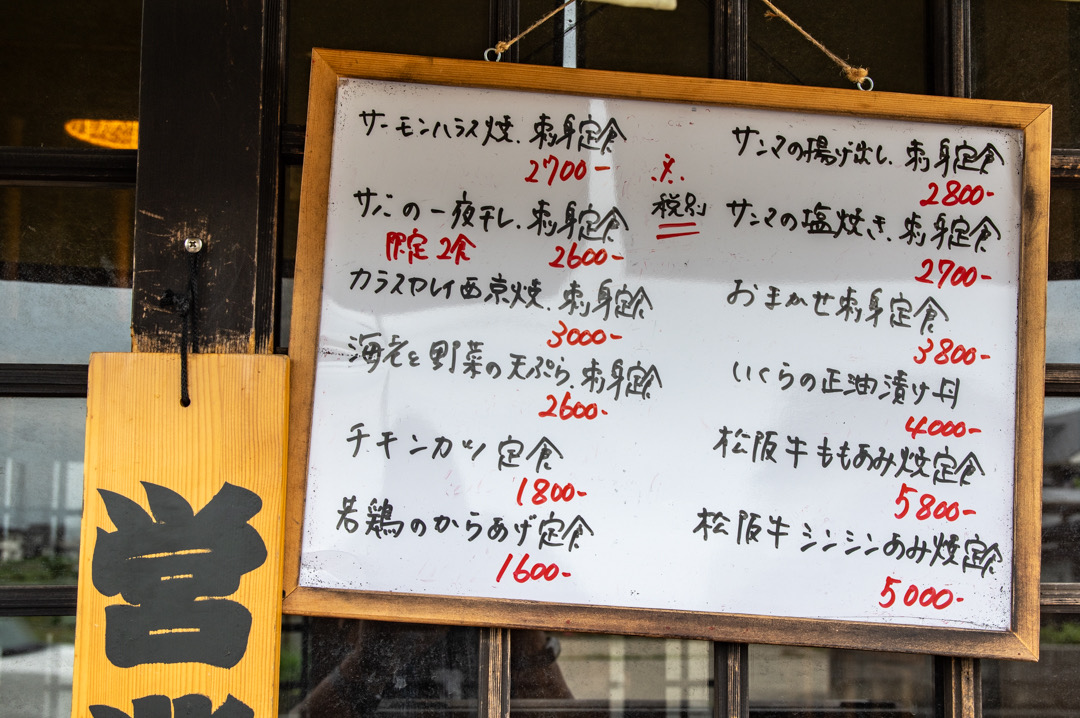 サーモンハラス焼、刺身定食
2700-
サバの一夜干し、刺身定食
限定2食 2600-
カラスカレイ西京焼、刺身定食
3000-
海老と野菜の天ぷら、刺身定食
2600-
チキンカツ定食
1800-
若鶏のからあげ定食
1600-
※
税別
サンマの揚げ出し、刺身定食
2800-
サンマの塩焼き、刺身定食
2700-
おまかせ刺身定食
3800-
いくらの正油漬け丼
4000-
松阪牛ももあみ焼定食
5800-
松阪牛シンシンあみ焼定食
5000-
営